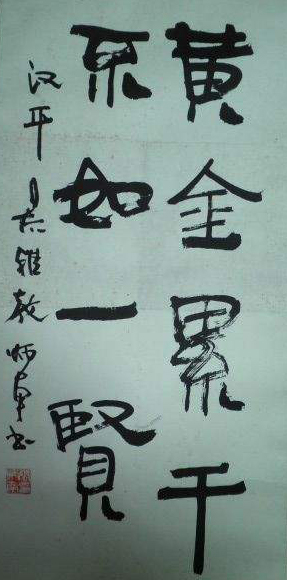 黄金累千
不如一賢
汉平同志雅教书